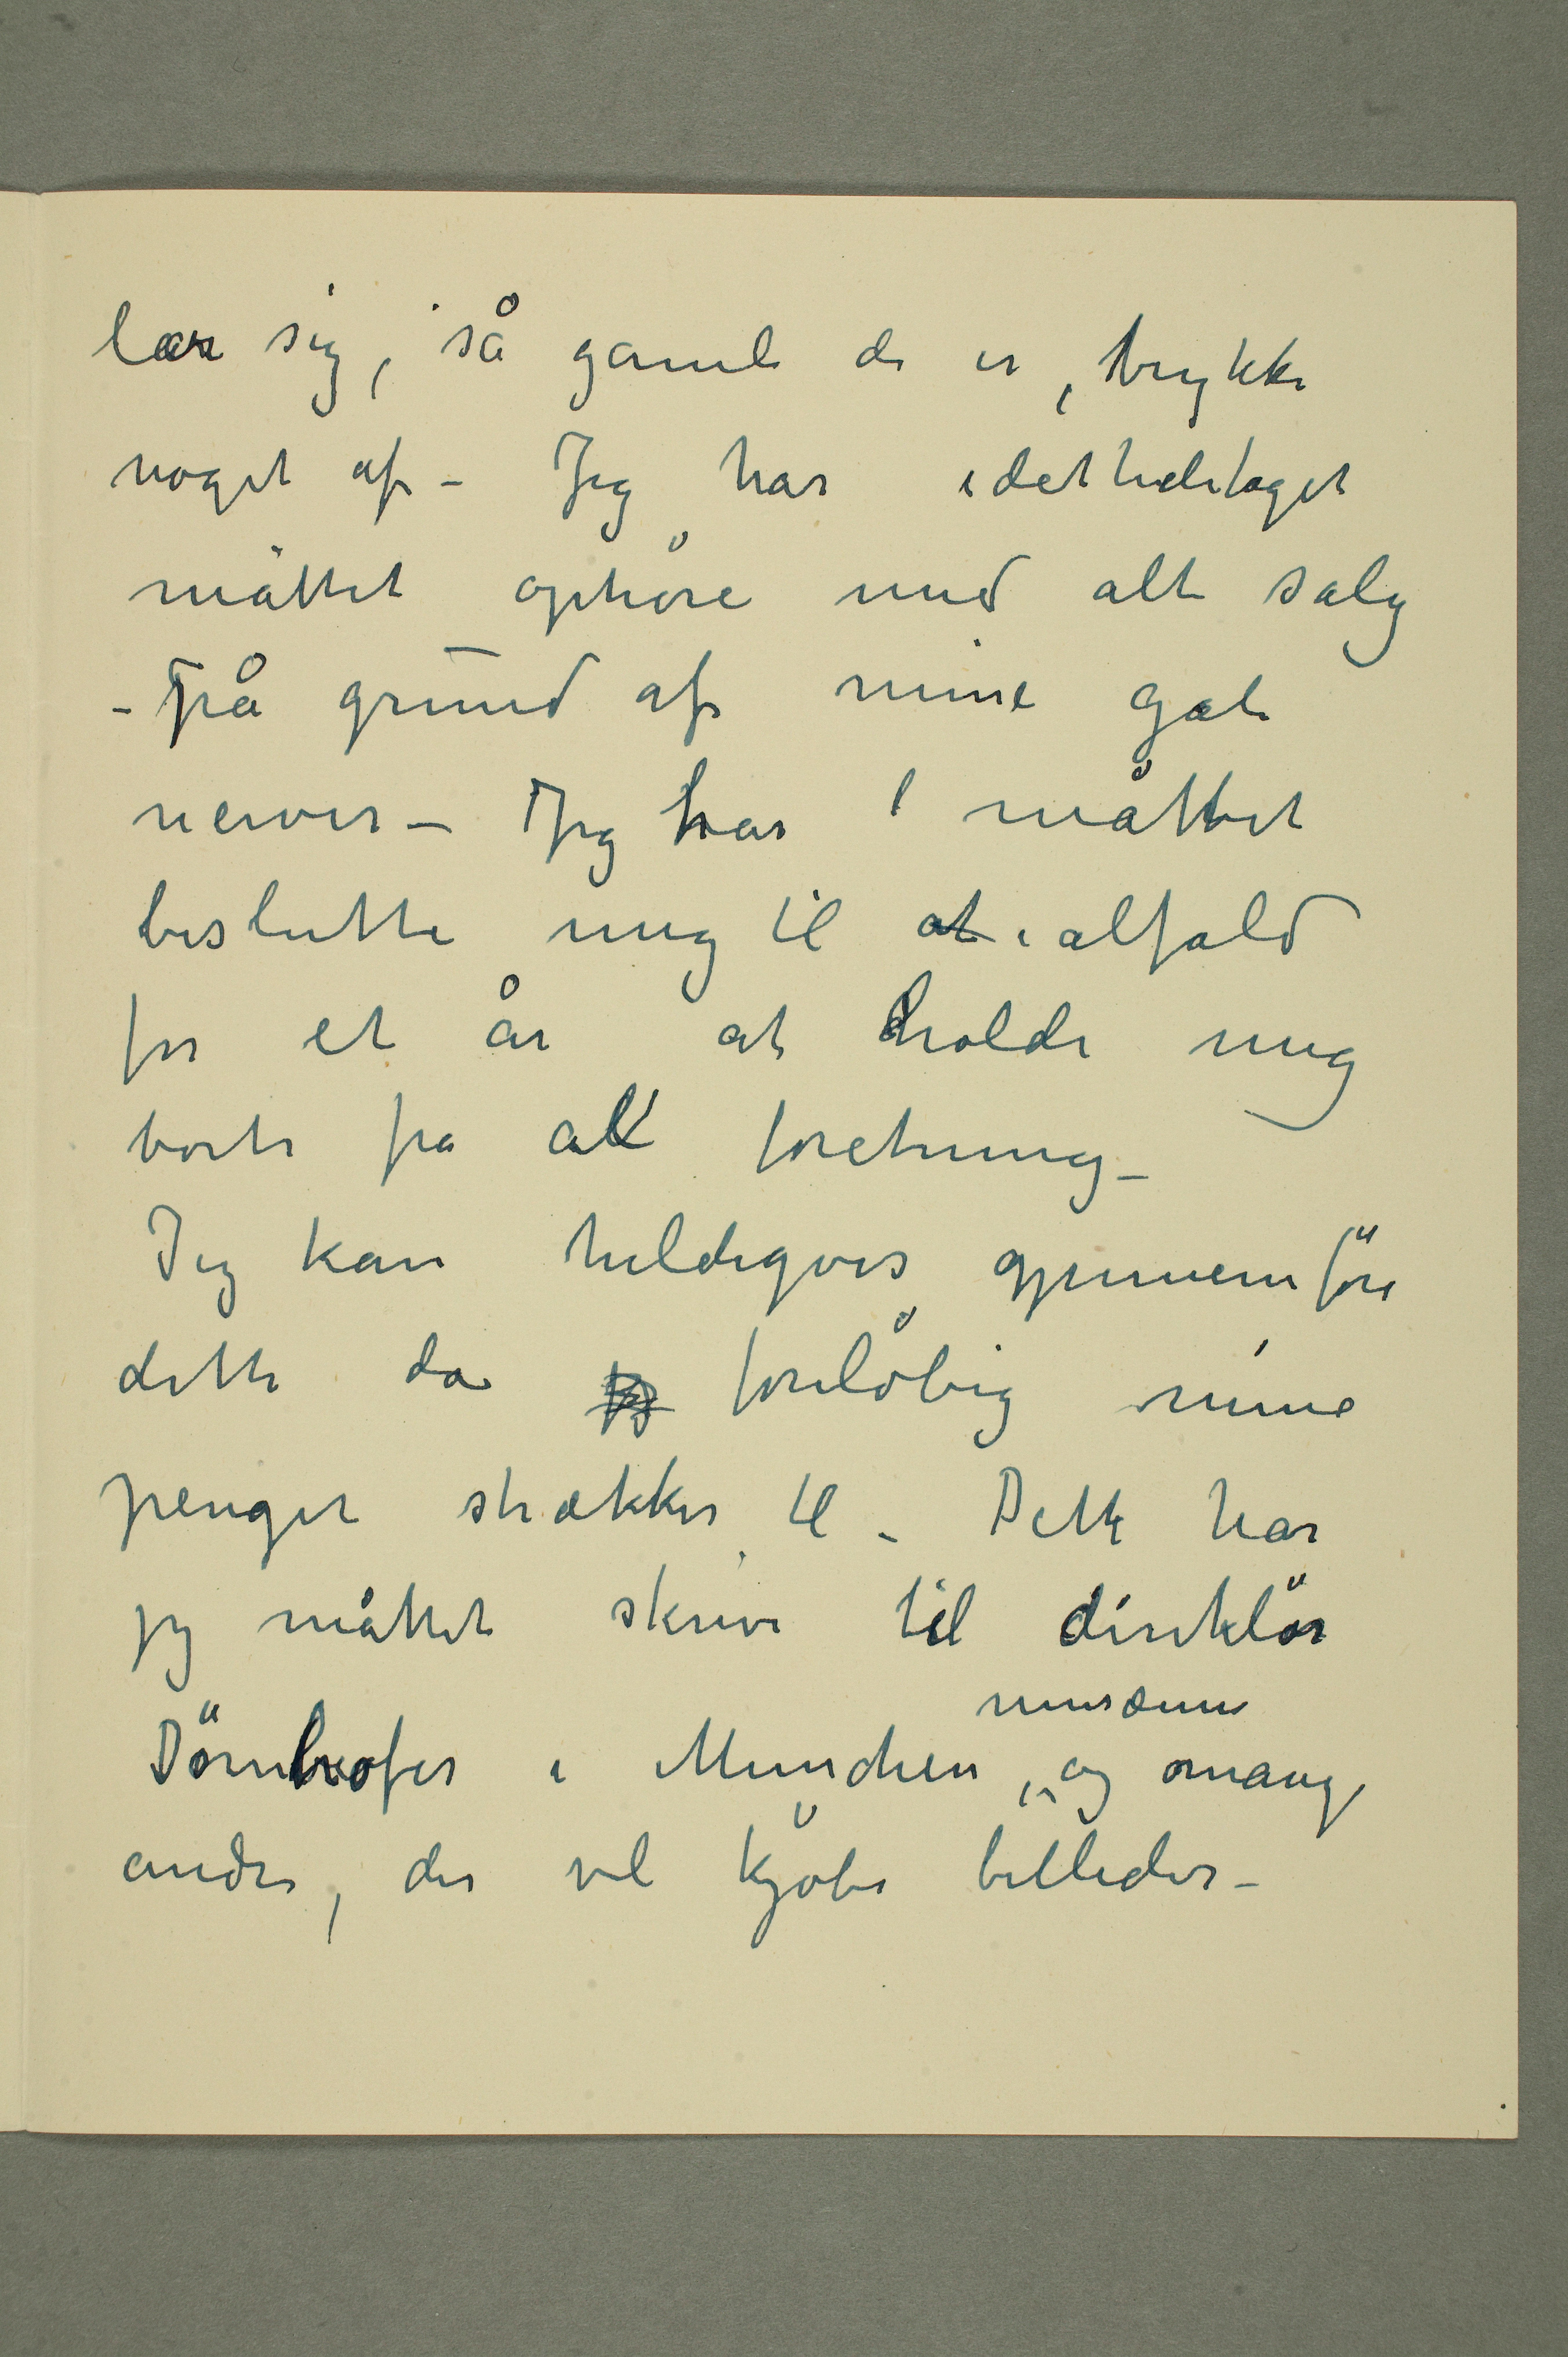 lar sig, så gamle de er, trykke
noget af – Jeg har idetheletaget
måttet ophöre med alt salg
– På grund af mine gale
nerver – Jeg har måttet
beslutte mig til at ialfald
for et år at holde mig
borte fra al foretning –
Jeg kan heldigvis gjennemföre
dette da foreløbig mine
penger strækker til – Dette har
jeg måttet skrive til direktör
musæum
Dörnhofer i Munchen, og mange
andre, der vil kjöbe billeder –